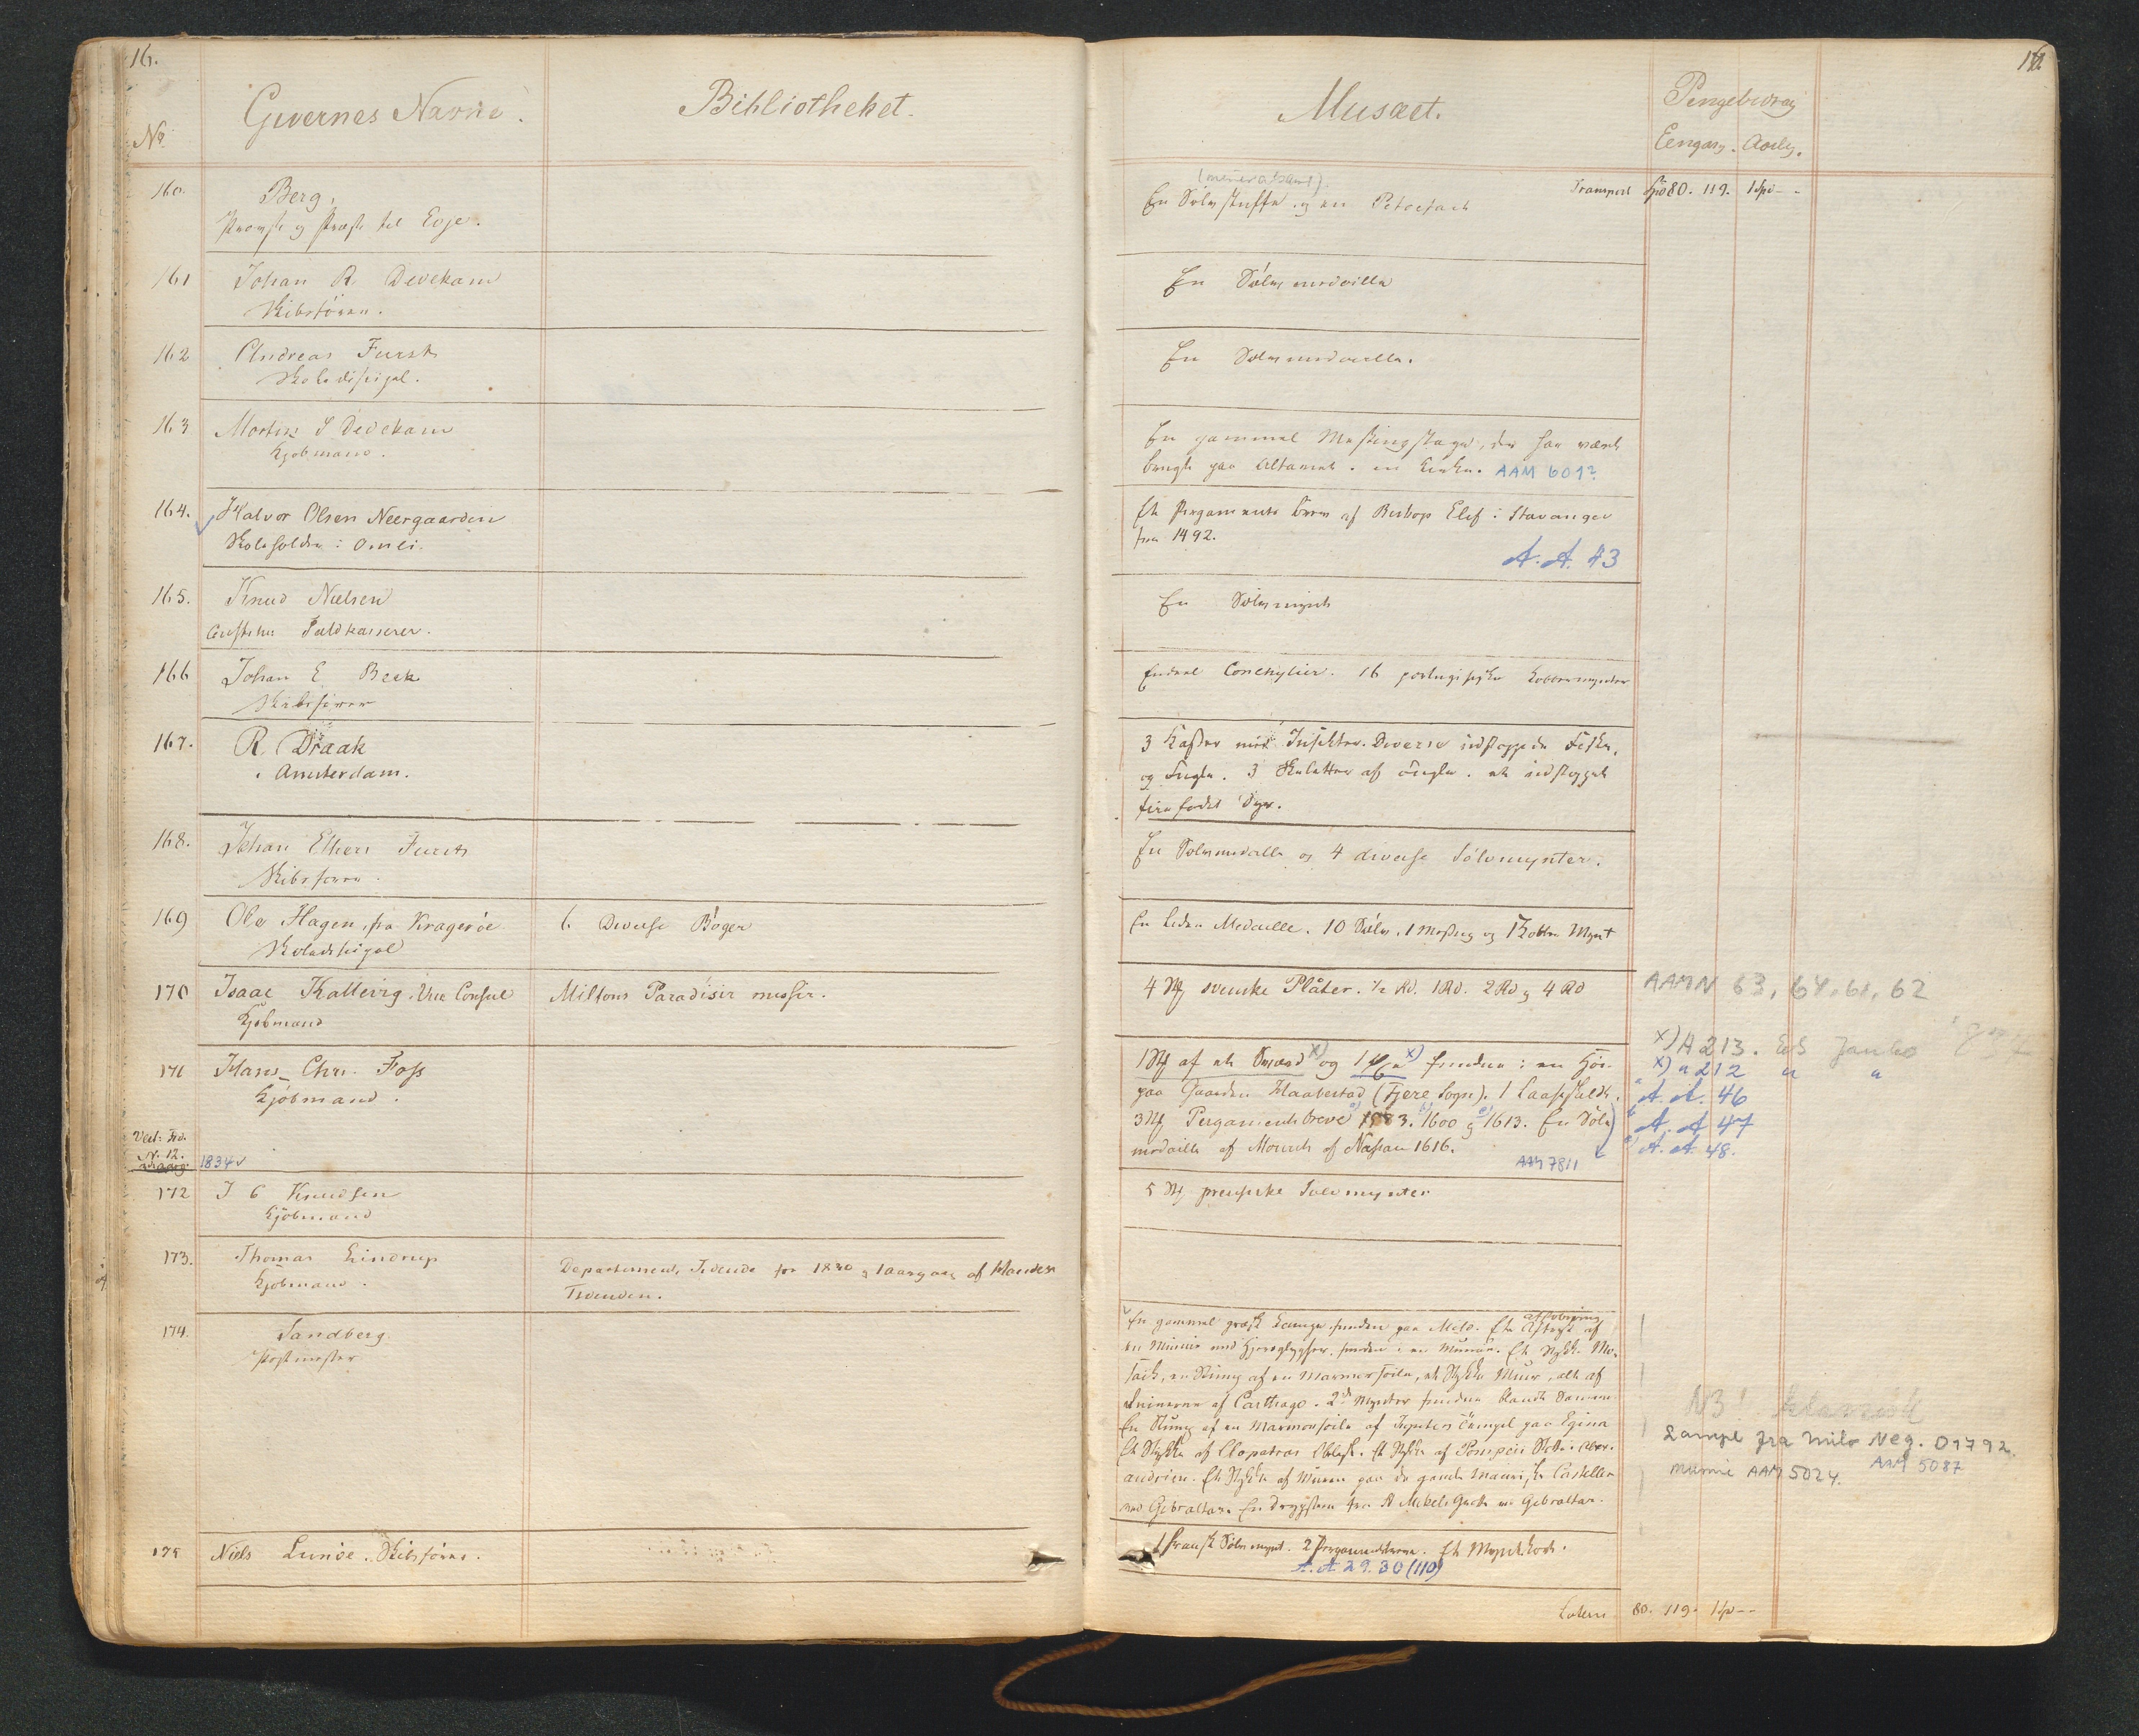 16.
Givernes Navne.
Bibliotheket.
No
160.
Berg,
Provst og Præst til Evje.
161
Johan R. Dedekam
Skibsfører.
162
Andreas Furst
Skoledisipel.
163
Morten S Dedekam
Kjøbmand.
164.
Halvor Olsen Neergaarden
Skoleholder i Omli.
165.
Knud Nielsen
Toldkasserer.
166
Johan E Beck
Skibsfører
167.
R. Draak
i Amsterdam.
168.
Johan Ellers Furst
Skibsfører.
169
Ole Hagen, fra Kragerøe
6. Diverse Bøger
Skoledisipel
170
Isaac Kallevig. Vice Consul
Miltons Paradisir
Kjøbmand
171
Hans Chr. Foss
Kjøbmand.
No. 12.
1834
172
J C Knudsen
Kjøbmand
173.
Thomas Lindrup
Departements Tidende for 1830 1 Aargang af Handels
Kjøbmand.
Tidenden.
174.
Sandberg
Postmester
175
Niels Lunde. Skibsfører.
Musæet.
Pengebidrag
Eengang. Aarlig.
(mineralsaml).
En Sølvstuffe og en Petrefact
Transport
80. 119. 1
En Sølvmedaille
En Sølvmedaille.
En gammel Messingstage, der har været
brugt paa Alteret i en Kirke. AAM 601?
Et Pergaments Brev af Biskop Elef i Stavanger
fra 1492.
A.A. 43
En Sølvmynt
Endeel Conchylier. 16 portugisiske Kobbermynter
3 Kasser med Insekter. Diverse udstoppede Fiske,
og Fugle. 3 Skeletter af Fugle. et udstoppet
fire fodet Dyr.
En Sølvmedaille og 4 diverse Sølvmynter.
En Leder Medaille. 10 Sølv, 1 Messing og 1 Kobber Mynt
4 St svenske Plåter. 1/2 RD. 1RD. 2 RD og 4 RD
AAMN 63, 64, 61, 62
1 St af et Sværd x) og 1 x) funden i en Høi
x) A 213.
x) " 212 " "
paa Gaarden Haabestad (Fjere Sogn). 1
A. A. 46
3 St Pergamentsbreve 1583. 1600 og 1613. En Sølv
A. A 47
medaille af Moritz af Nassau 1616.
AAM 7811
A. A. 48.
5 St preussiske Sølvmynter
En gammel græsk Lampe funden paa Melo. Et Aftryk af
afstøbning
en Mumie med Hieroglypher, funden i en Mumie. Et Stykke Mo-
saik, en Stump af en Marmorsøile, et Stykke Muur, alt af
Ruinerne af Carthago. 2 Mynter fundne blandt Samme
En Stump af en Marmorsøile af Jupiters Tempel paa Egina
Et Stykke af Cleopatras Obelisk. Et Stykke af Pompeii Støtte i Alex-
andrien. Et Stykke af Muren paa de gamle Mauriske Casteller
ved Gibraltar. En Drypsteen fra St Mikels Grotte ved Gibraltar.
NB!
Lampe fra Milo Neg. 01792.
AAM 5087
mumie AAM 5024.
1 Fransk Sølvmynt. 2 Pergamentbreve. Et
A.A 29. 30 (110)
Latus
80. 119.